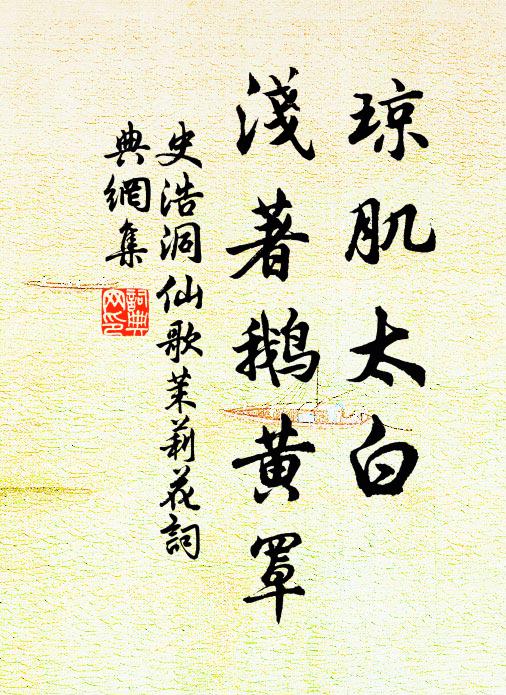 琼肌太白
淺著鹅黄罩
史浩洞仙歌茉莉花詞
典網集
詞典
网印